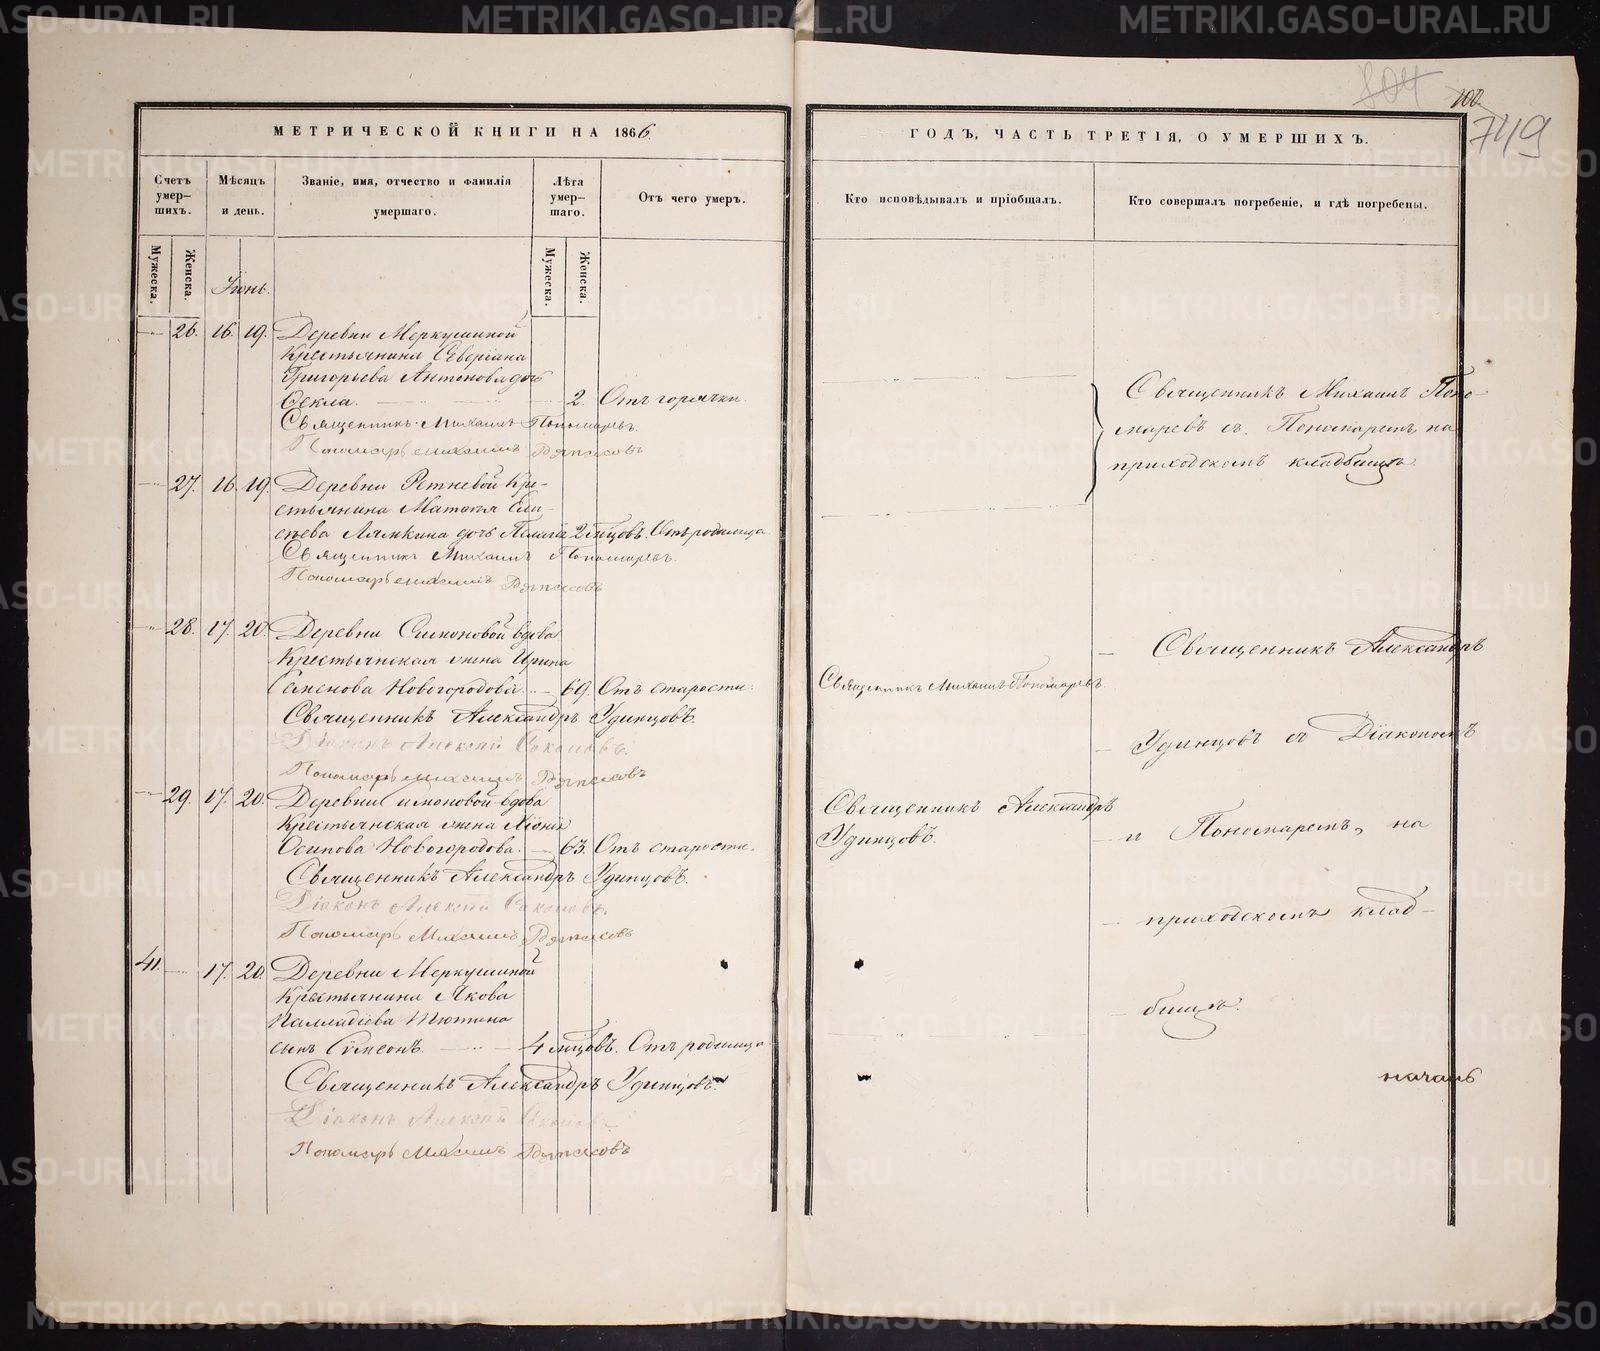 МЕТРИЧЕСКОЙ КНИГИ НА 1866
Счетъ умер-шихъ.
Мѣсяцъ и день.
Званіе, имя, отчество и фамилія умершаго.
Лѣта умер-шаго.
Отъ чего умеръ.
Мужеска.
Женска.
Мужеска.
Женска.
Іюнь.
26. 16. 19. Деревни Меркушиной
Крестьянина Северіана
Григорьева Антонова дочь
Ѳекла. 2. Отъ горячки.
Священникъ Михаилъ Пономаревъ.
Пономарь Михаилъ
27. 16. 19. Деревни Ретневой Кре-
стьянина Матѳея Ели-
сѣева Лямкина дочь 2 мѣсцовъ. Отъ родимца
Священникъ Михаилъ Пономаревъ.
Пономарь Михаилъ
28. 17. 20. Деревни Симоновой вдова
Крестьянская жена Ирина
Семенова Новогородова. 69. Отъ старости.
Священникъ Александръ Удинцовъ.
Діаконъ Алексѣй Соколовъ.
Пономарь Михаилъ
29. 17. 20. Деревни Симоновой вдова
Крестьянская жена
Осипова Новогородова. 63. Отъ старости.
Священникъ Александръ Удинцовъ.
Діаконъ Алексѣй Соколовъ.
Пономарь Михаилъ
41. 17. 20. Деревни Меркушиной
Крестьянина Якова
Палладіева
сынъ Сѵмеонъ. 4 мѣсцовъ. Отъ родимца
Священникъ Александръ Удинцовъ.
Діаконъ Алексѣй Соколовъ.
Пономарь Михаилъ
804
100.
749
ГОДЪ, ЧАСТЬ ТРЕТІЯ, О УМЕРШИХЪ.
Кто исповѣдывалъ и пріобщалъ.
Кто совершалъ погребеніе, и гдѣ погребены.
Священникъ Михаилъ Поно-
маревъ съ Пономаремъ, на
приходскомъ кладбищѣ.
Священникъ Михаилъ Пономаревъ.
Священникъ Александръ
Удинцовъ.
Священникъ Александръ
Удинцовъ съ Діакономъ
и Пономаремъ, на
приходскомъ клад-
бищѣ.
началъ
METRIKI.GASO-URAL.RU